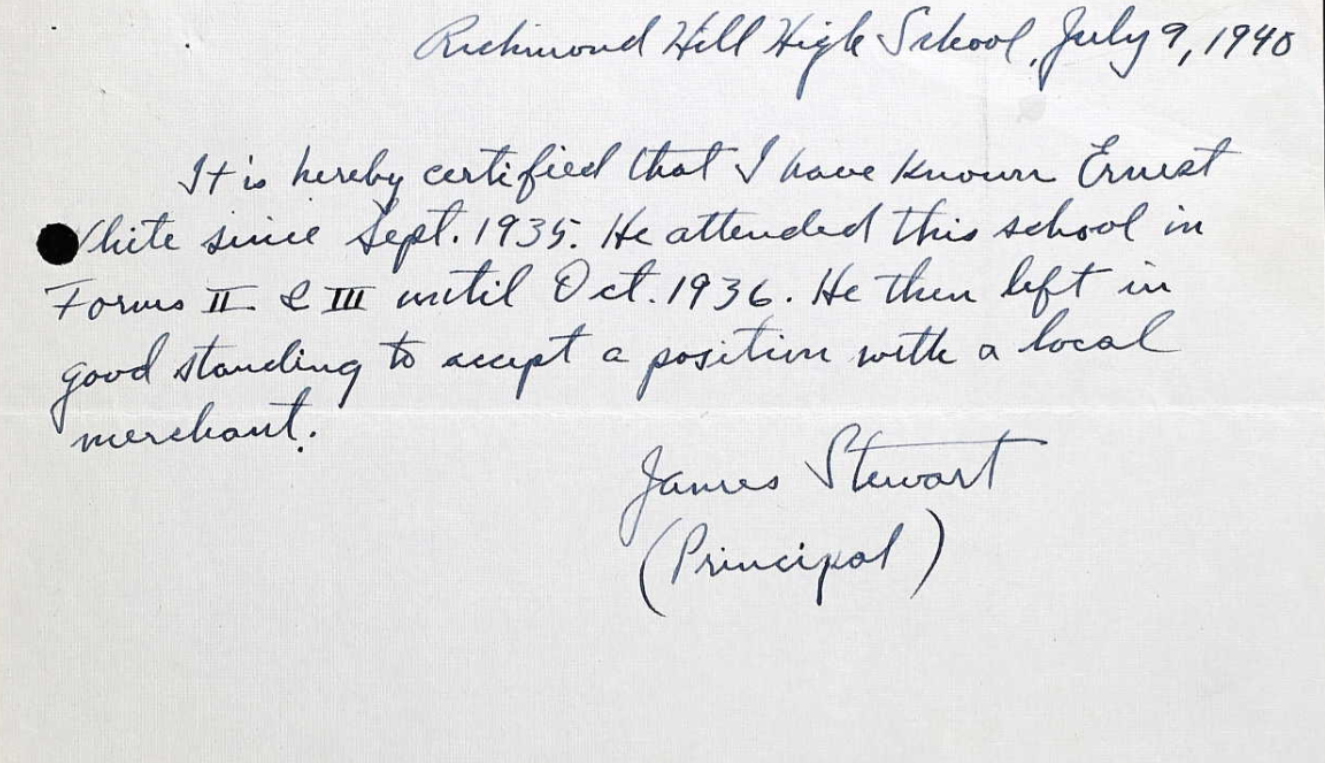 Richmond Hill High School, July 9, 1940
It is hereby certified that I have known Ernest
White since Sept. 1935. He attended this school in
Forms II & III until Oct. 1936. He then left in
good standing to accept a position with a local
merchant.
James Stewart
(Principal)